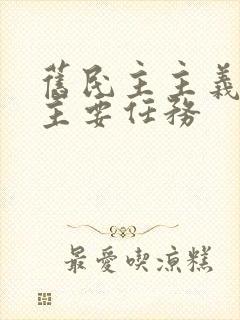 舊民主主義
主要任務
最愛喫涼糕